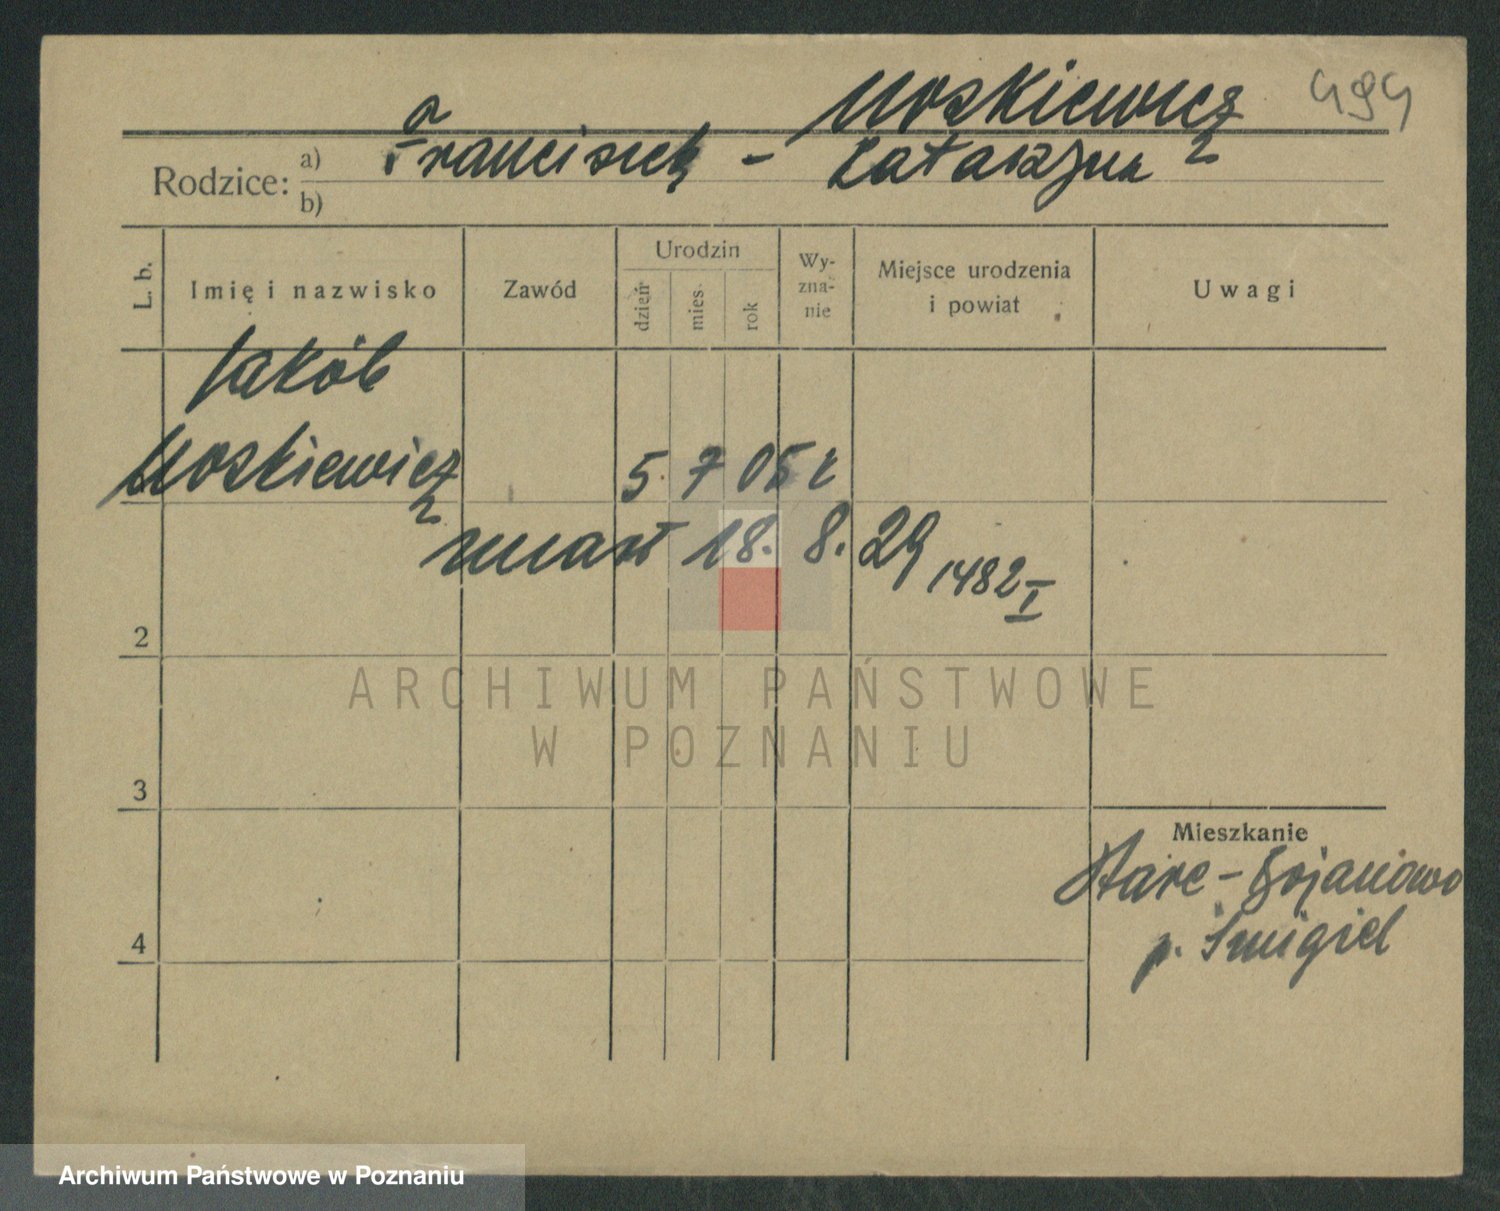 Moskiewicz 494
Rodzice: a) Franciszek - Katarzyna
b)
L. b. Imię i nazwisko Zawód Urodzin dzień mies. rok Wy-zna-nie Miejsce urodzenia i powiat Uwagi
Jakób
Moskiewicz 5 7 05 r
zmarł 18. 8. 29 1482 I
2
ARCHIWUM PAŃSTWOWE
W POZNANIU
3
Mieszkanie
Stare-Bojanowo
p. Śmigiel
4
Archiwum Państwowe w Poznaniu